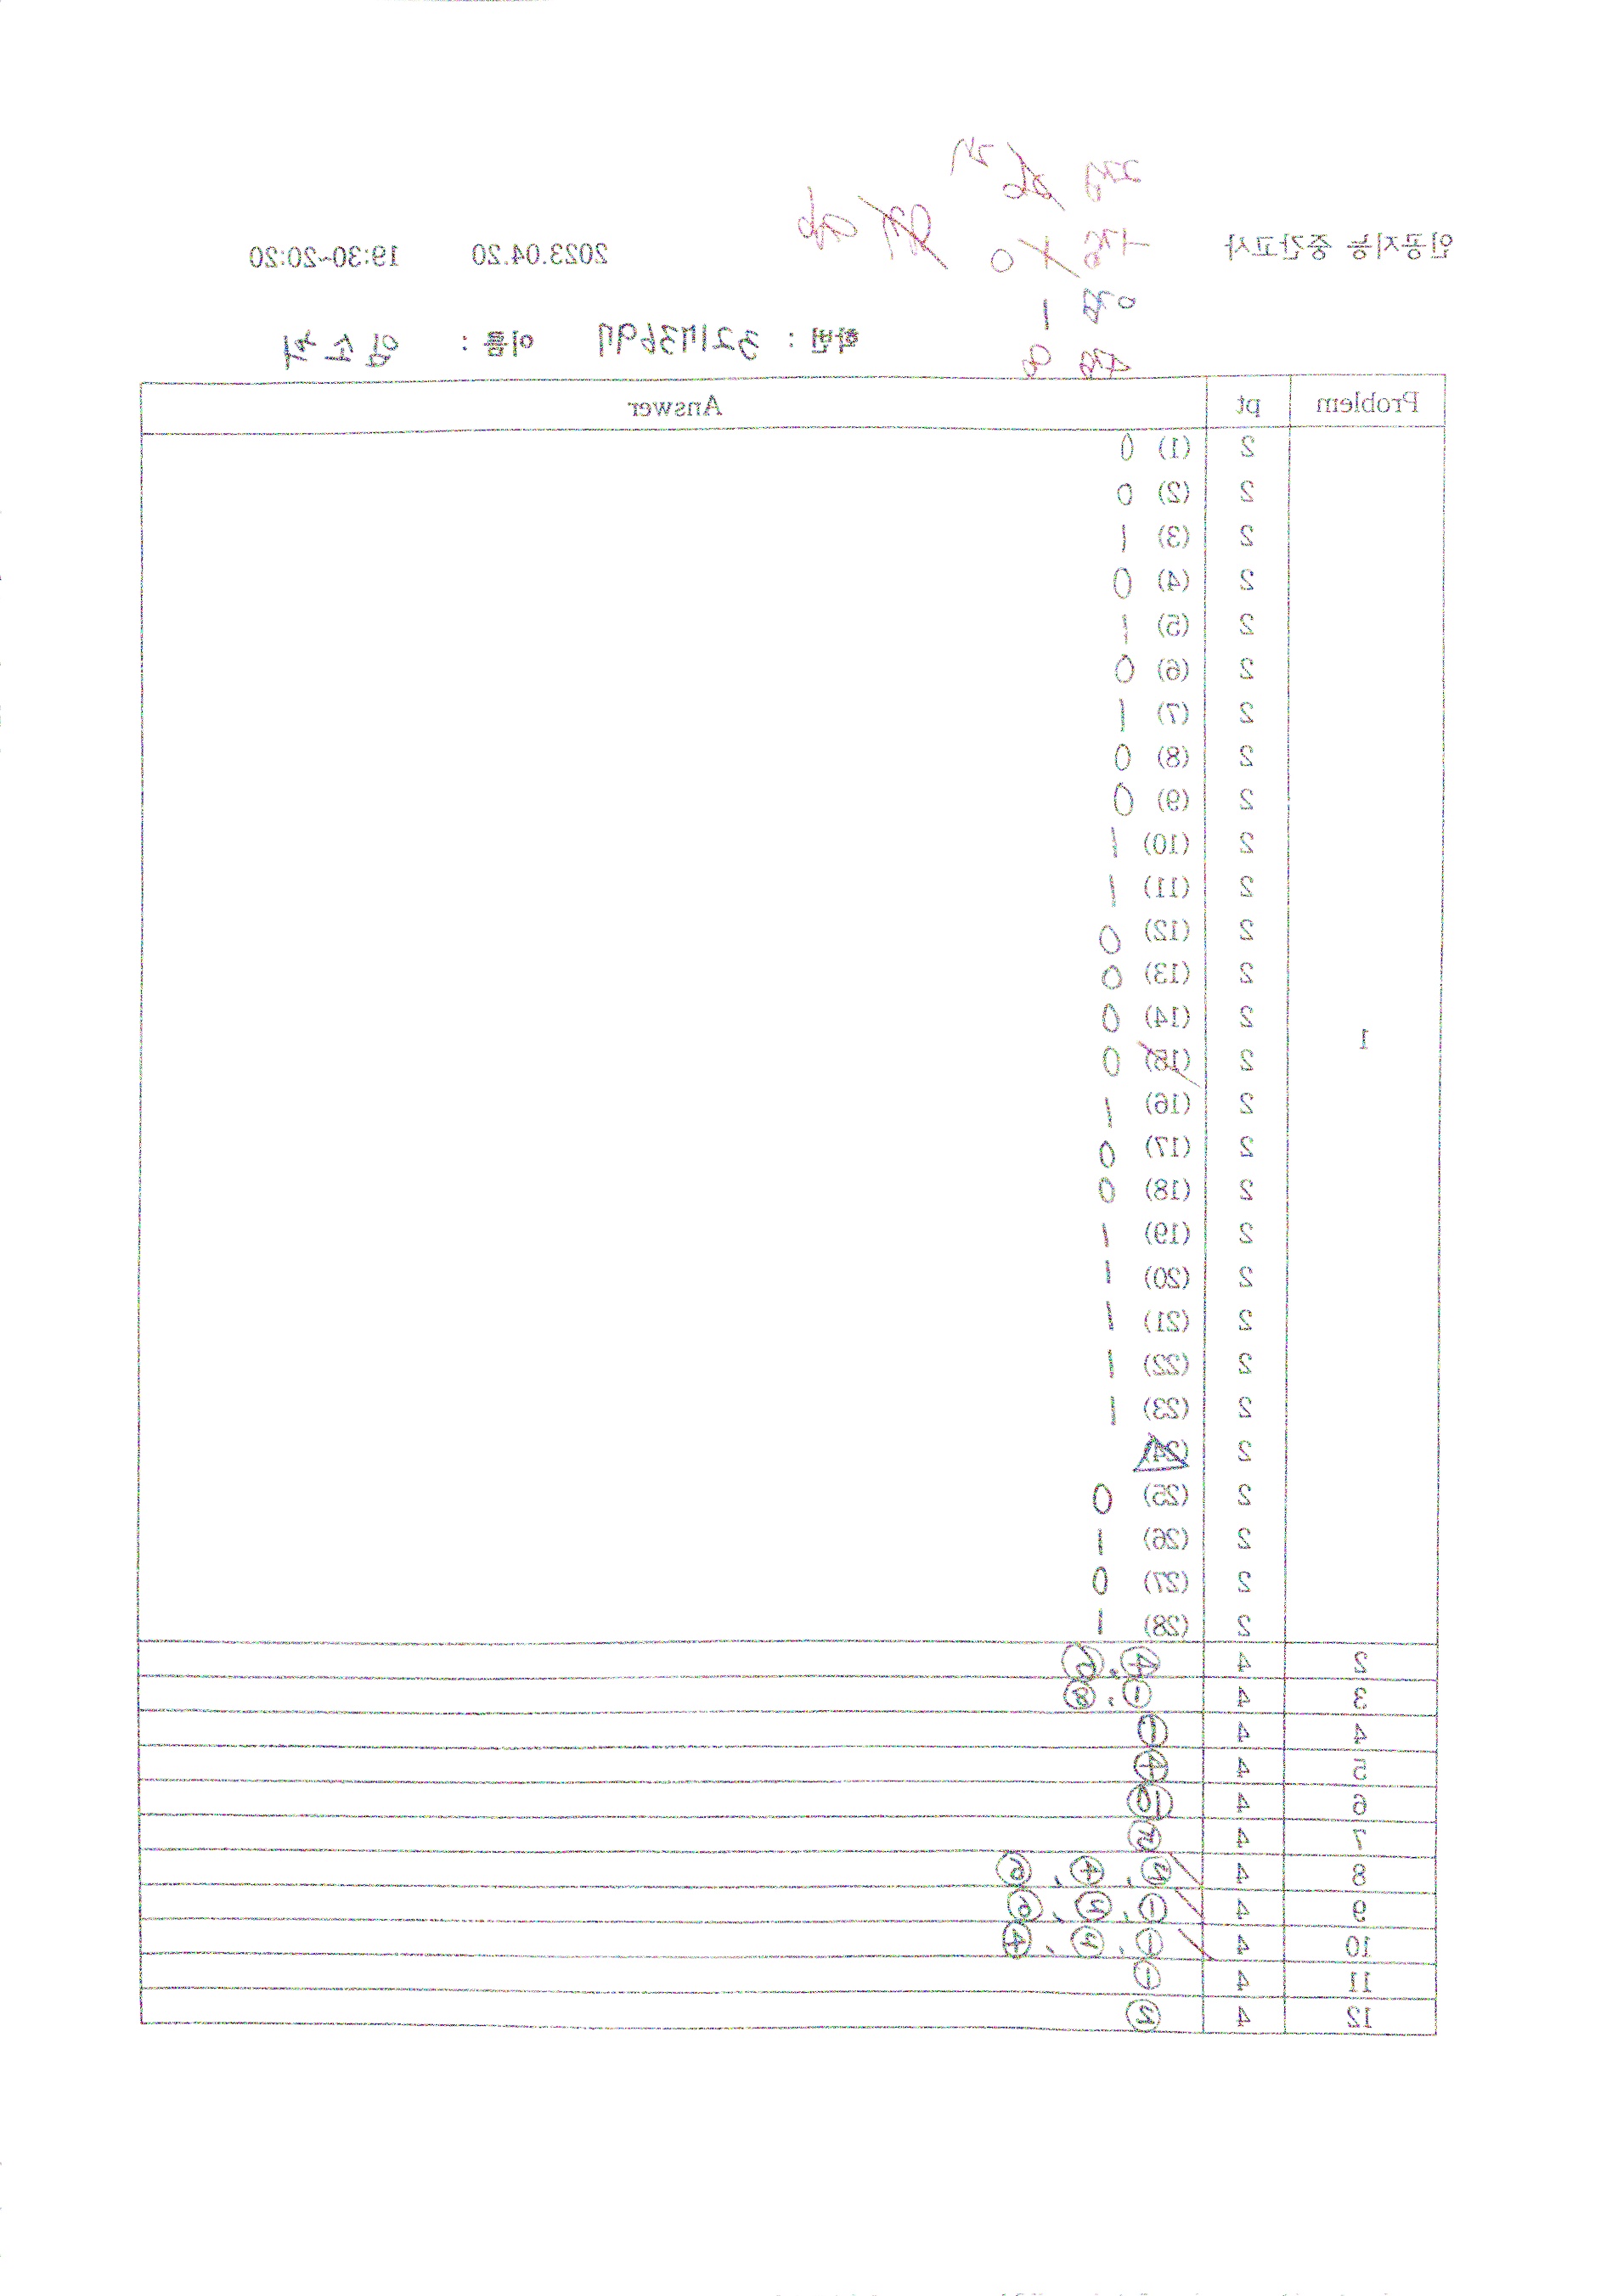 인공지능 중간고사 2023.04.20 19:30~20:20
학번 : 이름 :
Problem pt Answer
1
2 (1) 0
2 (2) 0
2 (3) 1
2 (4) 0
2 (5) 1
2 (6) 0
2 (7) 1
2 (8) 0
2 (9) 0
2 (10) 1
2 (11) 1
2 (12) 0
2 (13) 0
2 (14) 0
2 (15) 0
2 (16) 1
2 (17) 0
2 (18) 0
2 (19) 1
2 (20) 1
2 (21) 1
2 (22) 1
2 (23) 1
2 (24)
2 (25) 0
2 (26) 1
2 (27) 0
2 (28) 1
2 4 ④,
3 4 ①, ⑧
4 4 ①
5 4 ④
6 4
7 4 ⑤
8 4 ④, ⑥
9 4 ①, ⑥
10 4 ①, ④
11 4 ①
12 4 ②